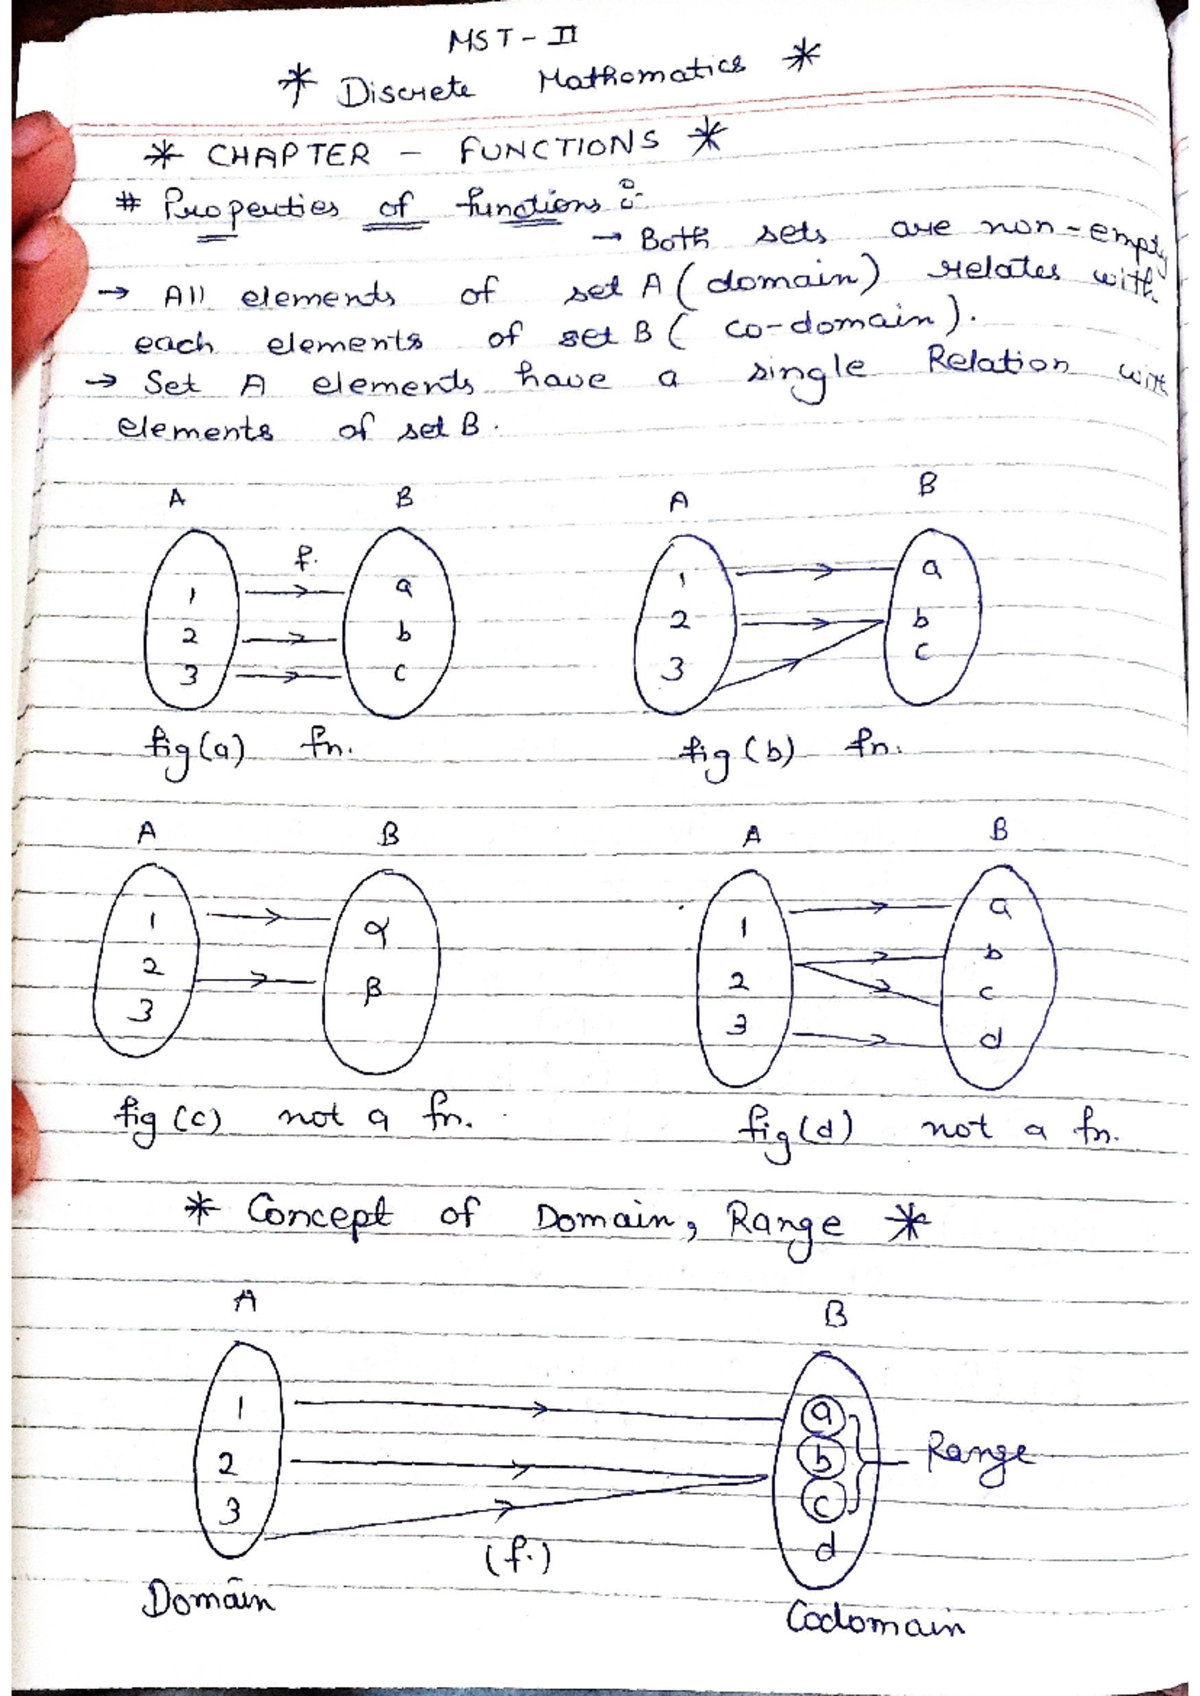 MST - II
* Discrete Mathematics *
* CHAPTER - FUNCTIONS *
# Properties of functions :-
→ Both sets are non-empty
→ All elements of set A (domain) relates with
each elements of set B ( co-domain).
→ Set A elements have a single Relation with
elements of set B.
A B A B
f.
1 a 1 a
2 b 2 b
3 c 3 c
fig(a) fn. fig (b) fn.
A B A B
1 α 1 a
2 β 2 b
3 3 c
d
fig (c) not a fn. fig(d) not a fn.
* Concept of Domain, Range *
A B
1 a
2 b Range
3 c
(f.) d
Domain Codomain